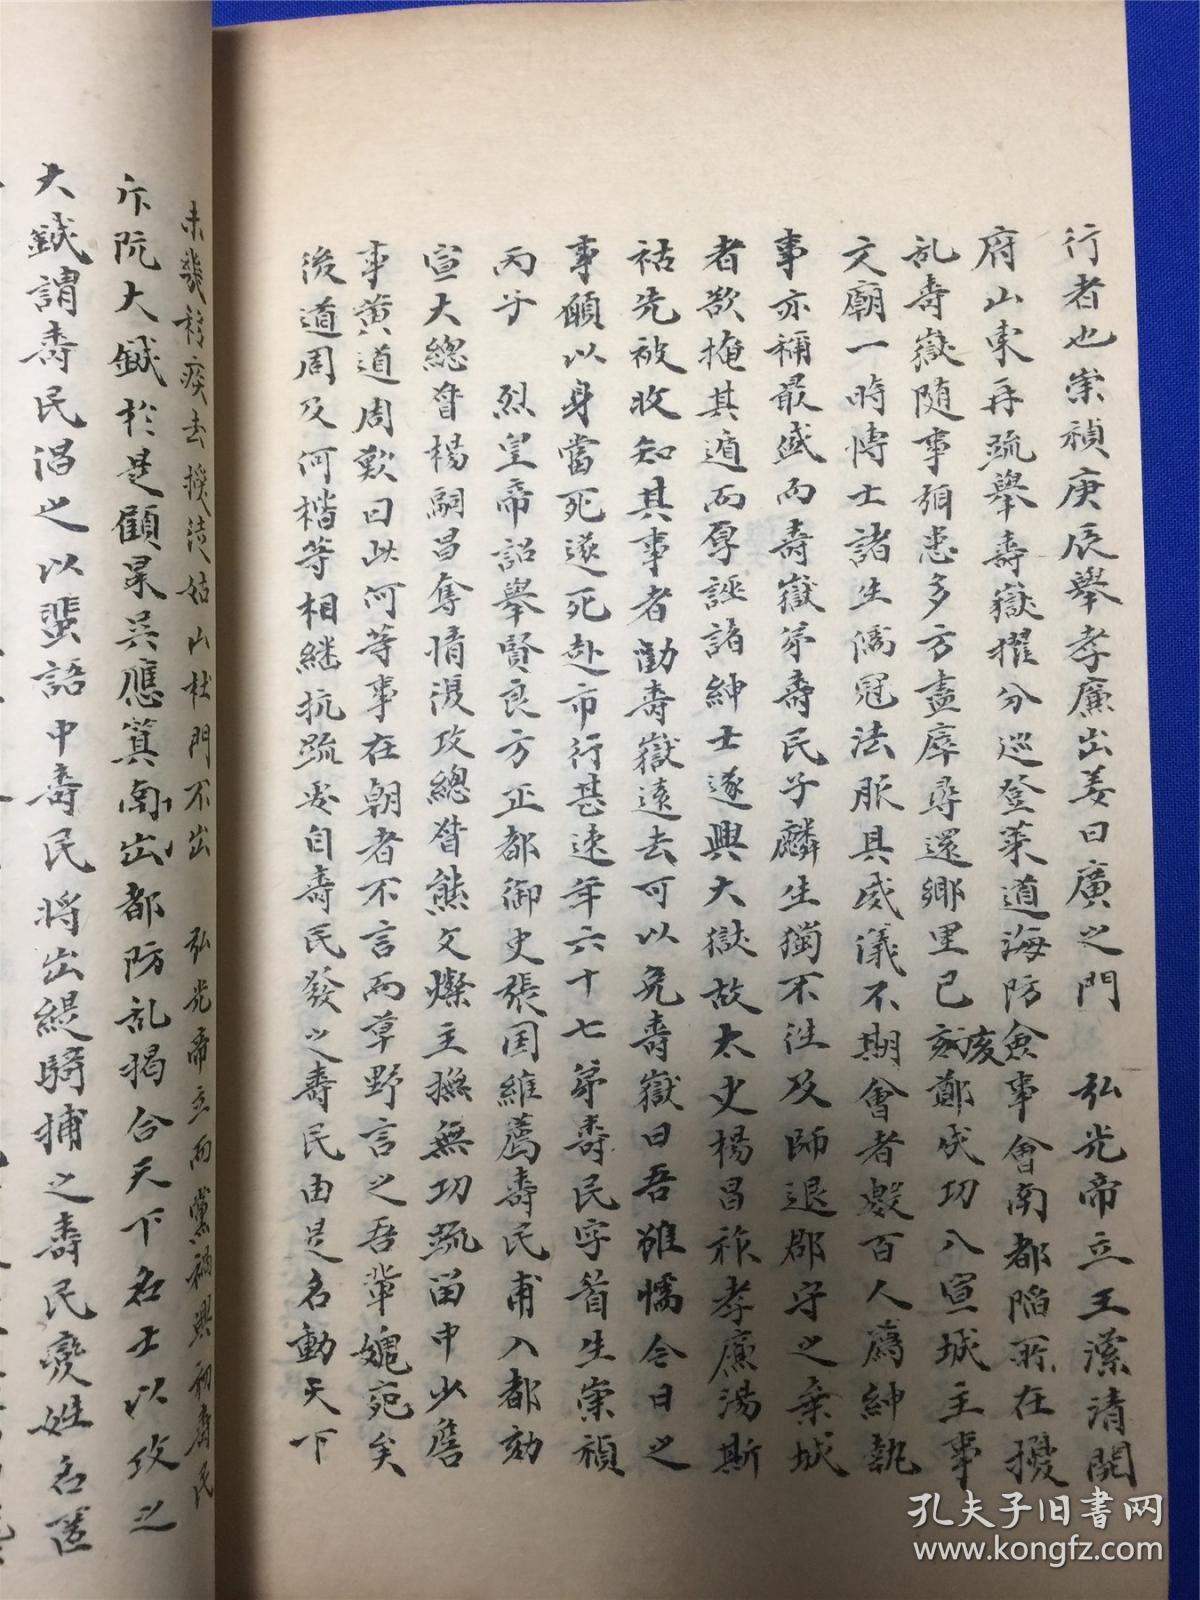 行者也崇禎庚辰舉孝廉出姜曰廣之門　弘光帝立王濚清開
府山東再疏舉壽嶽擢分巡登萊道海防僉事會南都陷所在擾
乱壽嶽随事弭患多方盡瘁尋還鄉里已亥鄭成功入宣城主事
文廟一時博士諸生儒冠法服具威儀不期會者數百人薦紳執
事亦稱最盛而壽嶽弟壽民子麟生獨不徃及師退郡守之棄城
者欲掩其遁而厚誣諸紳士遂興大獄故太史楊昌祚孝廉湯斯
祜先被收知其事者勸壽嶽遠去可以免壽嶽曰吾雖懦今日之
事願以身當死遂死赴市行甚速年六十七弟壽民字首生崇禎
丙子　烈皇帝詔舉賢良方正都御史張国維薦壽民甫入都劾
宣大總督楊嗣昌奪情復攻總督熊文燦主撫無功疏留中少詹
事黄道周歎曰此何等事在朝者不言而草野言之吾輩媿宛矣
後道周及何楷等相繼抗疏要自壽民發之壽民由是名動天下
未幾移疾去授徒姑山杜門不出　弘光帝立而黨禍興初壽民
斥阮大鋮於是顧杲吳應箕南出都防乱揭合天下名士以攻之
大鋮謂壽民倡之以蜚語中壽民将出緹騎捕之壽民變姓名匿
孔夫子旧书网
www.kongfz.com